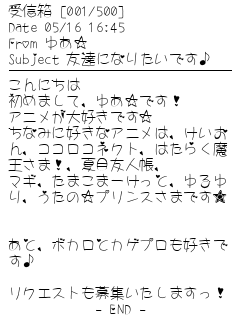 受信箱 [001/500]
Date 05/16 16:45
From ゆあ☆
Subject 友達になりたいです♪
こんにちは
初めまして、ゆあ☆です！
アニメが大好きです☆
ちなみに好きなアニメは、けいお
ん、ココロコネクト、はたらく魔
王さま！、夏目友人帳、
マギ、たまこまーけっと、ゆるゆ
り、うたの☆プリンスさまです★
あと、ボカロとカゲプロも好きで
す♪
リクエストも募集いたしますっ！
- END -